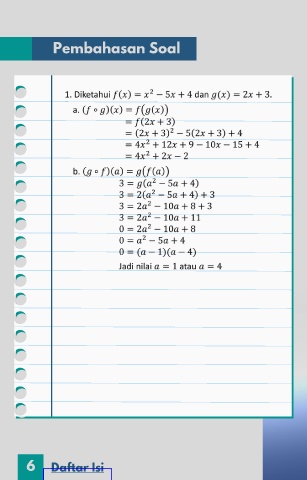 Pembahasan Soal
1. Diketahui f(x) = x² − 5x + 4 dan g(x) = 2x + 3.
a. (f ∘ g)(x) = f(g(x))
= f(2x + 3)
= (2x + 3)² − 5(2x + 3) + 4
= 4x² + 12x + 9 − 10x − 15 + 4
= 4x² + 2x − 2
b. (g ∘ f)(a) = g(f(a))
3 = g(a² − 5a + 4)
3 = 2(a² − 5a + 4) + 3
3 = 2a² − 10a + 8 + 3
3 = 2a² − 10a + 11
0 = 2a² − 10a + 8
0 = a² − 5a + 4
0 = (a − 1)(a − 4)
Jadi nilai a = 1 atau a = 4
6 Daftar Isi